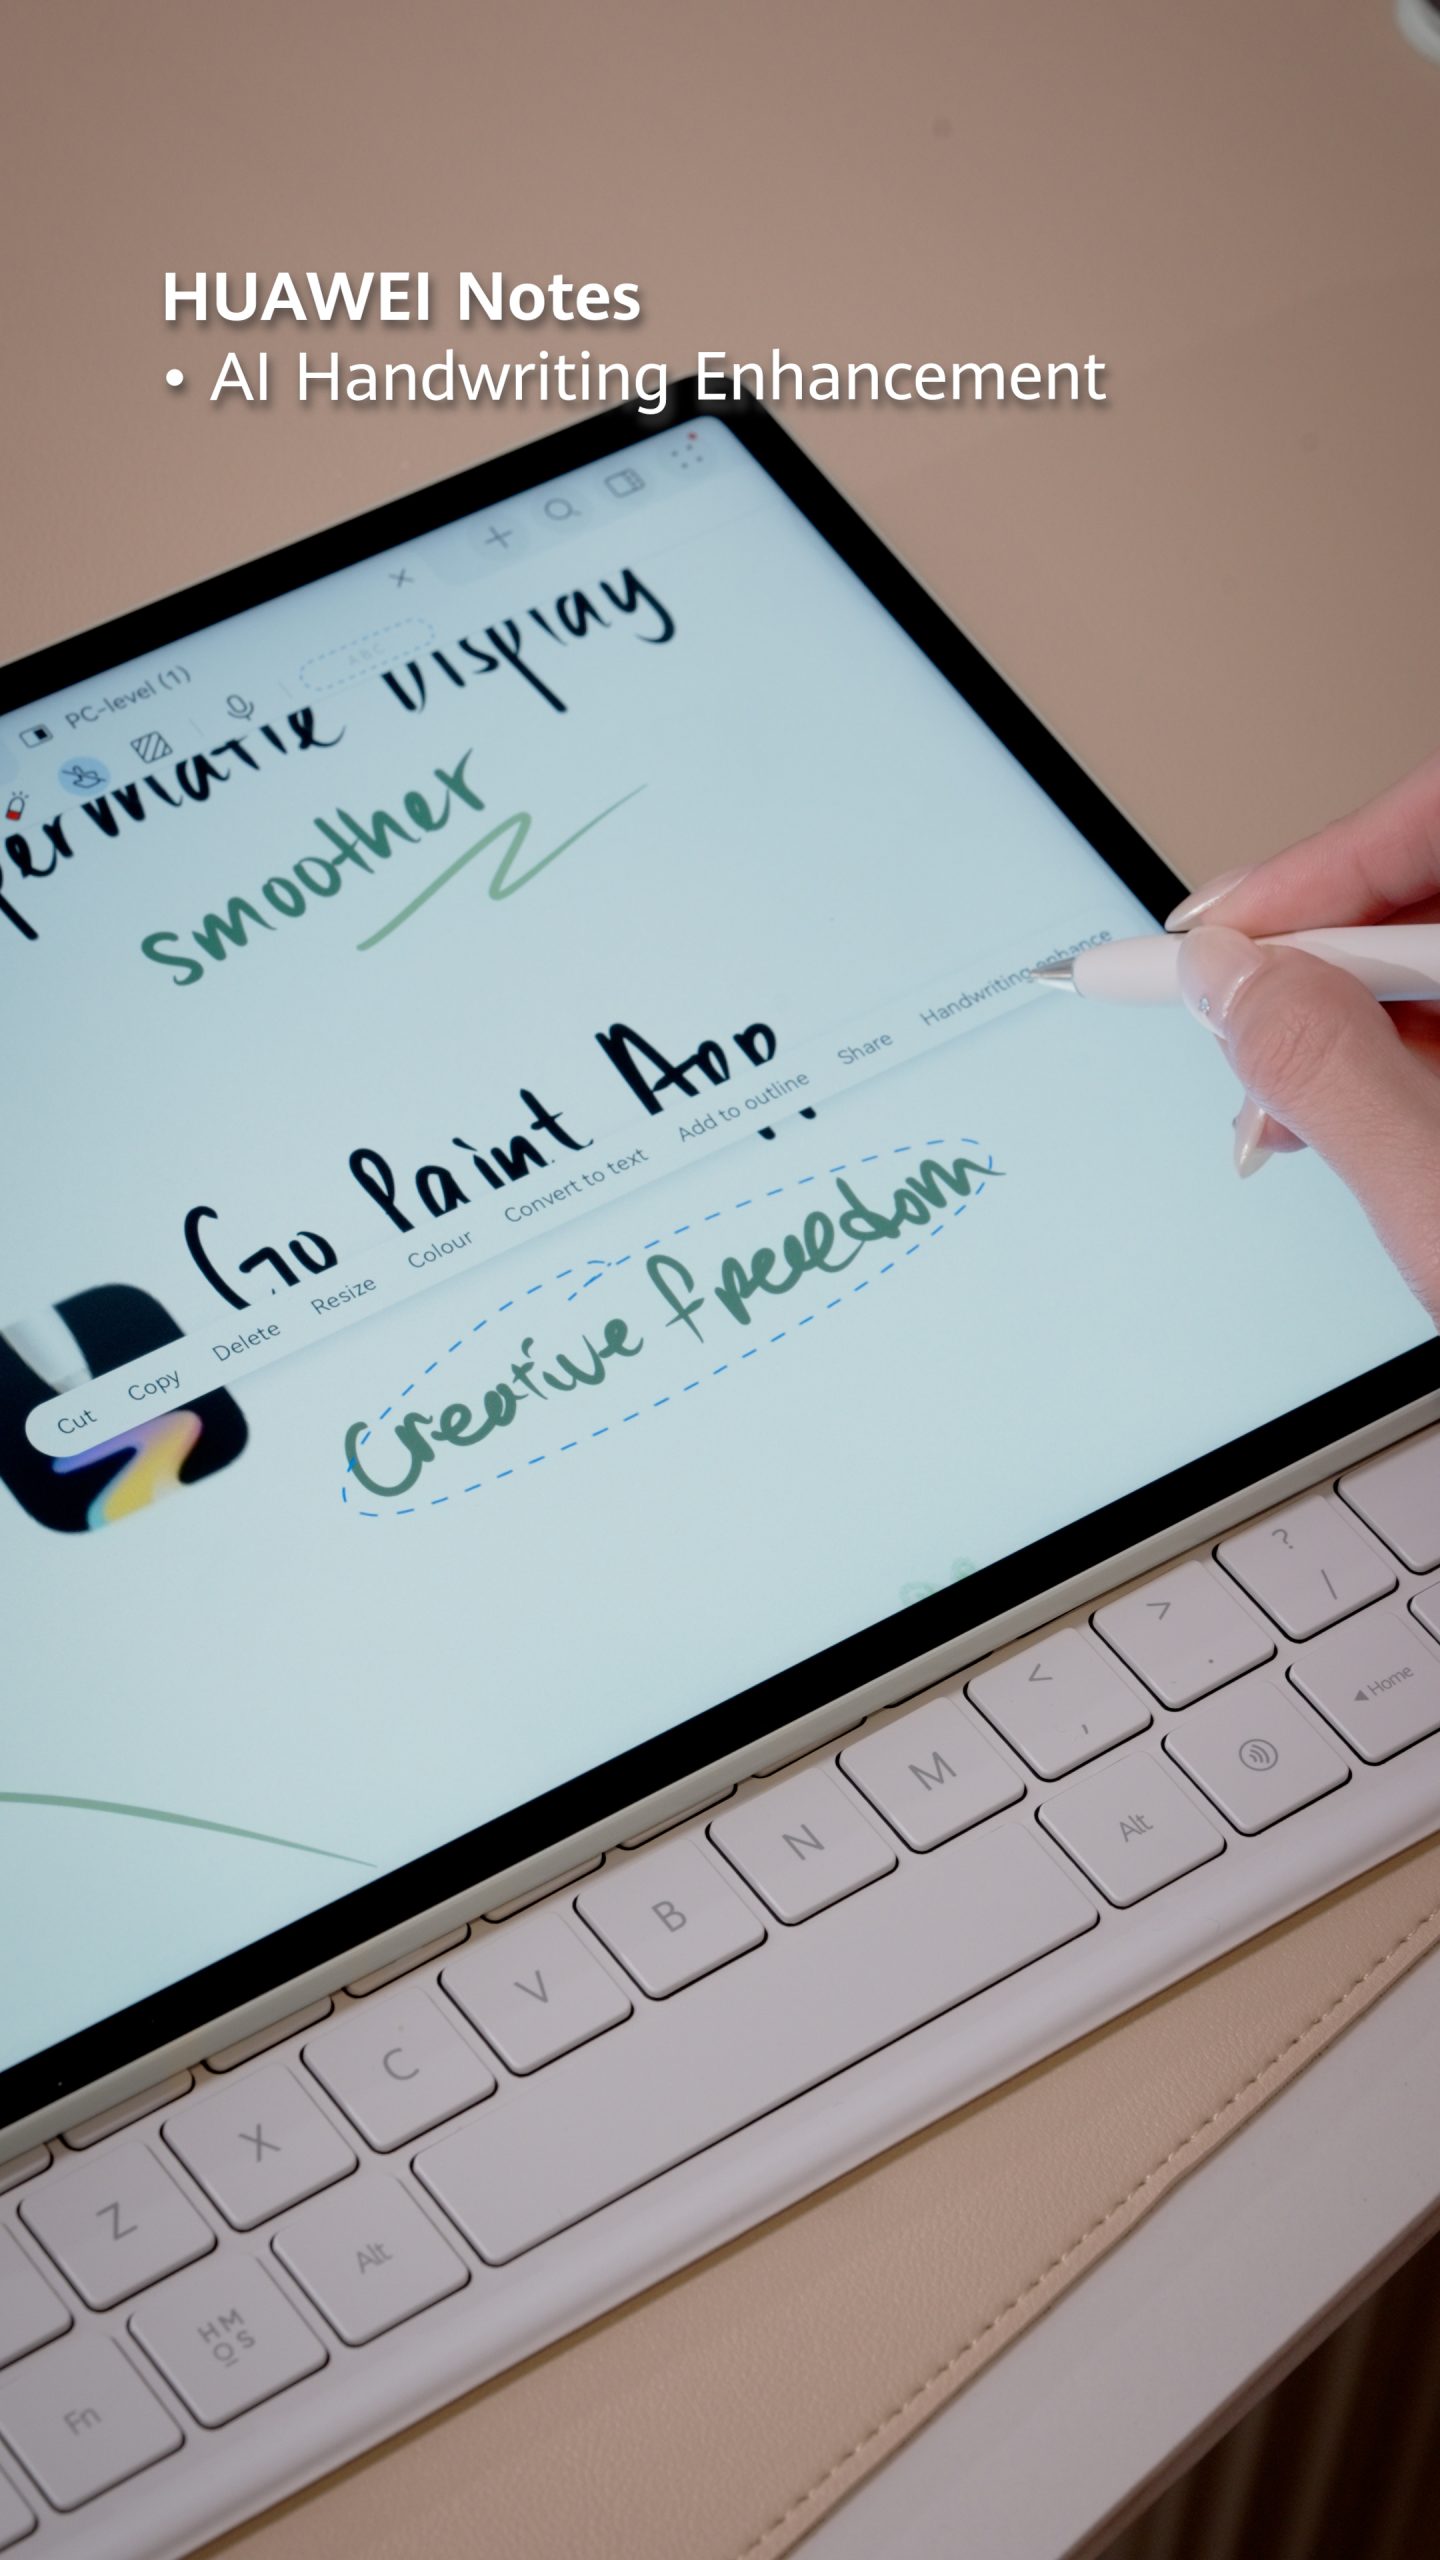 HUAWEI Notes
• AI Handwriting Enhancement
PC-level (1)
ABC
Display
smoother
Go Paint App
Cut Copy Delete Resize Colour Convert to text Add to outline Share Handwriting enhance
Creative freedom
? /
> .
< ,
M
N
B
V
C
X
Z
◀ Home
Alt
Alt
HM
OS
Fn